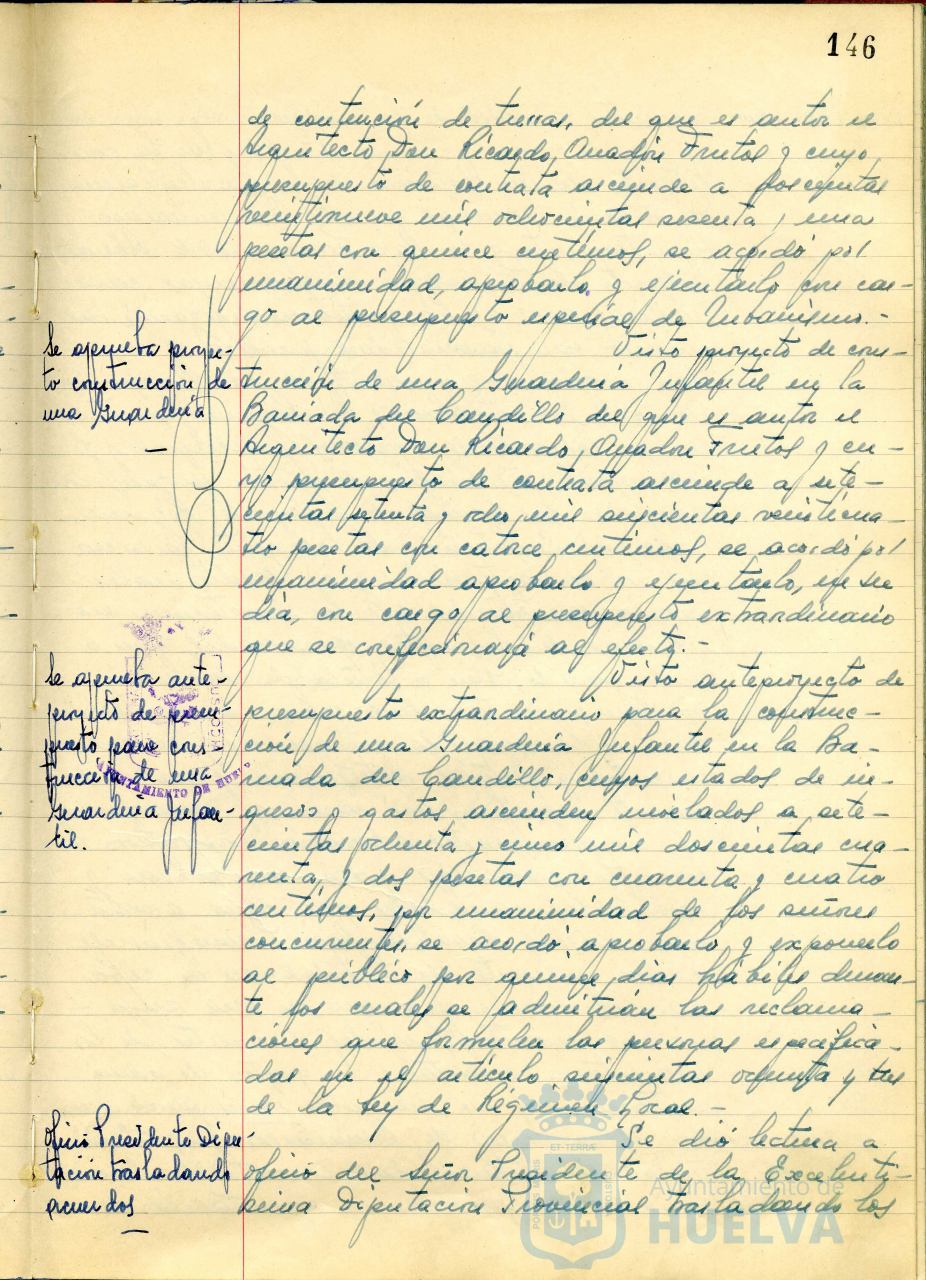 146
de contención de tierras, del que es autor el
Arquitecto Don Ricardo Anadón Frutos y cuyo
presupuesto de contrata asciende a doscientas
veintinueve mil ochocientas sesenta y una
pesetas con quince centimos, se acordó por
unanimidad, aprobarlo y ejecutarlo con car-
go al presupuesto especial de Urbanismo.-
Se aprueba proyec-
to construcción de
una Guardería
Visto proyecto de cons-
trucción de una Guardería Infantil en la
Barriada del Caudillo del que es autor el
Arquitecto Don Ricardo Anadón Frutos y cu-
yo presupuesto de contrata asciende a sete-
cientas setenta y ocho mil seiscientas veinticua-
tro pesetas con catorce centimos, se acordó por
unanimidad aprobarlo y ejecutarlo, en su
día, con cargo al presupuesto extraordinario
que se confeccionará al efecto.-
Se aprueba ante-
proyecto de presu-
puesto para cons-
trucción de una
Guardería Infan-
til.
AYUNTAMIENTO DE HUELVA
Visto anteproyecto de
presupuesto extraordinario para la construc-
ción de una Guardería Infantil en la Ba-
rriada del Caudillo, cuyos estados de in-
gresos y gastos ascienden nivelados a sete-
cientas ochenta y cinco mil doscientas cua-
renta y dos pesetas con cuarenta y cuatro
centimos, por unanimidad de los señores
concurrentes, se acordó aprobarlo y exponerlo
al público por quince días hábiles duran-
te los cuales se admitirán las reclama-
ciones que formulen las personas especifica-
das en el artículo seiscientas ochenta y tres
de la Ley de Régimen Local.-
Oficio Presidente Dipu-
tación trasladando
acuerdos
Se dió lectura a
oficio del Señor Presidente de la Excelentí-
sima Diputación Provincial trasladando los
Ayuntamiento de
HUELVA